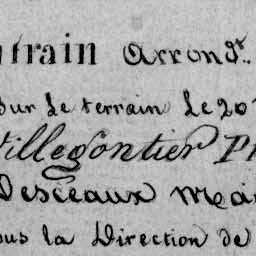 ntrain Arrondt.
Sur le terrain le 20
Villegontier Pr
Desceaux Mai
ous la Direction de